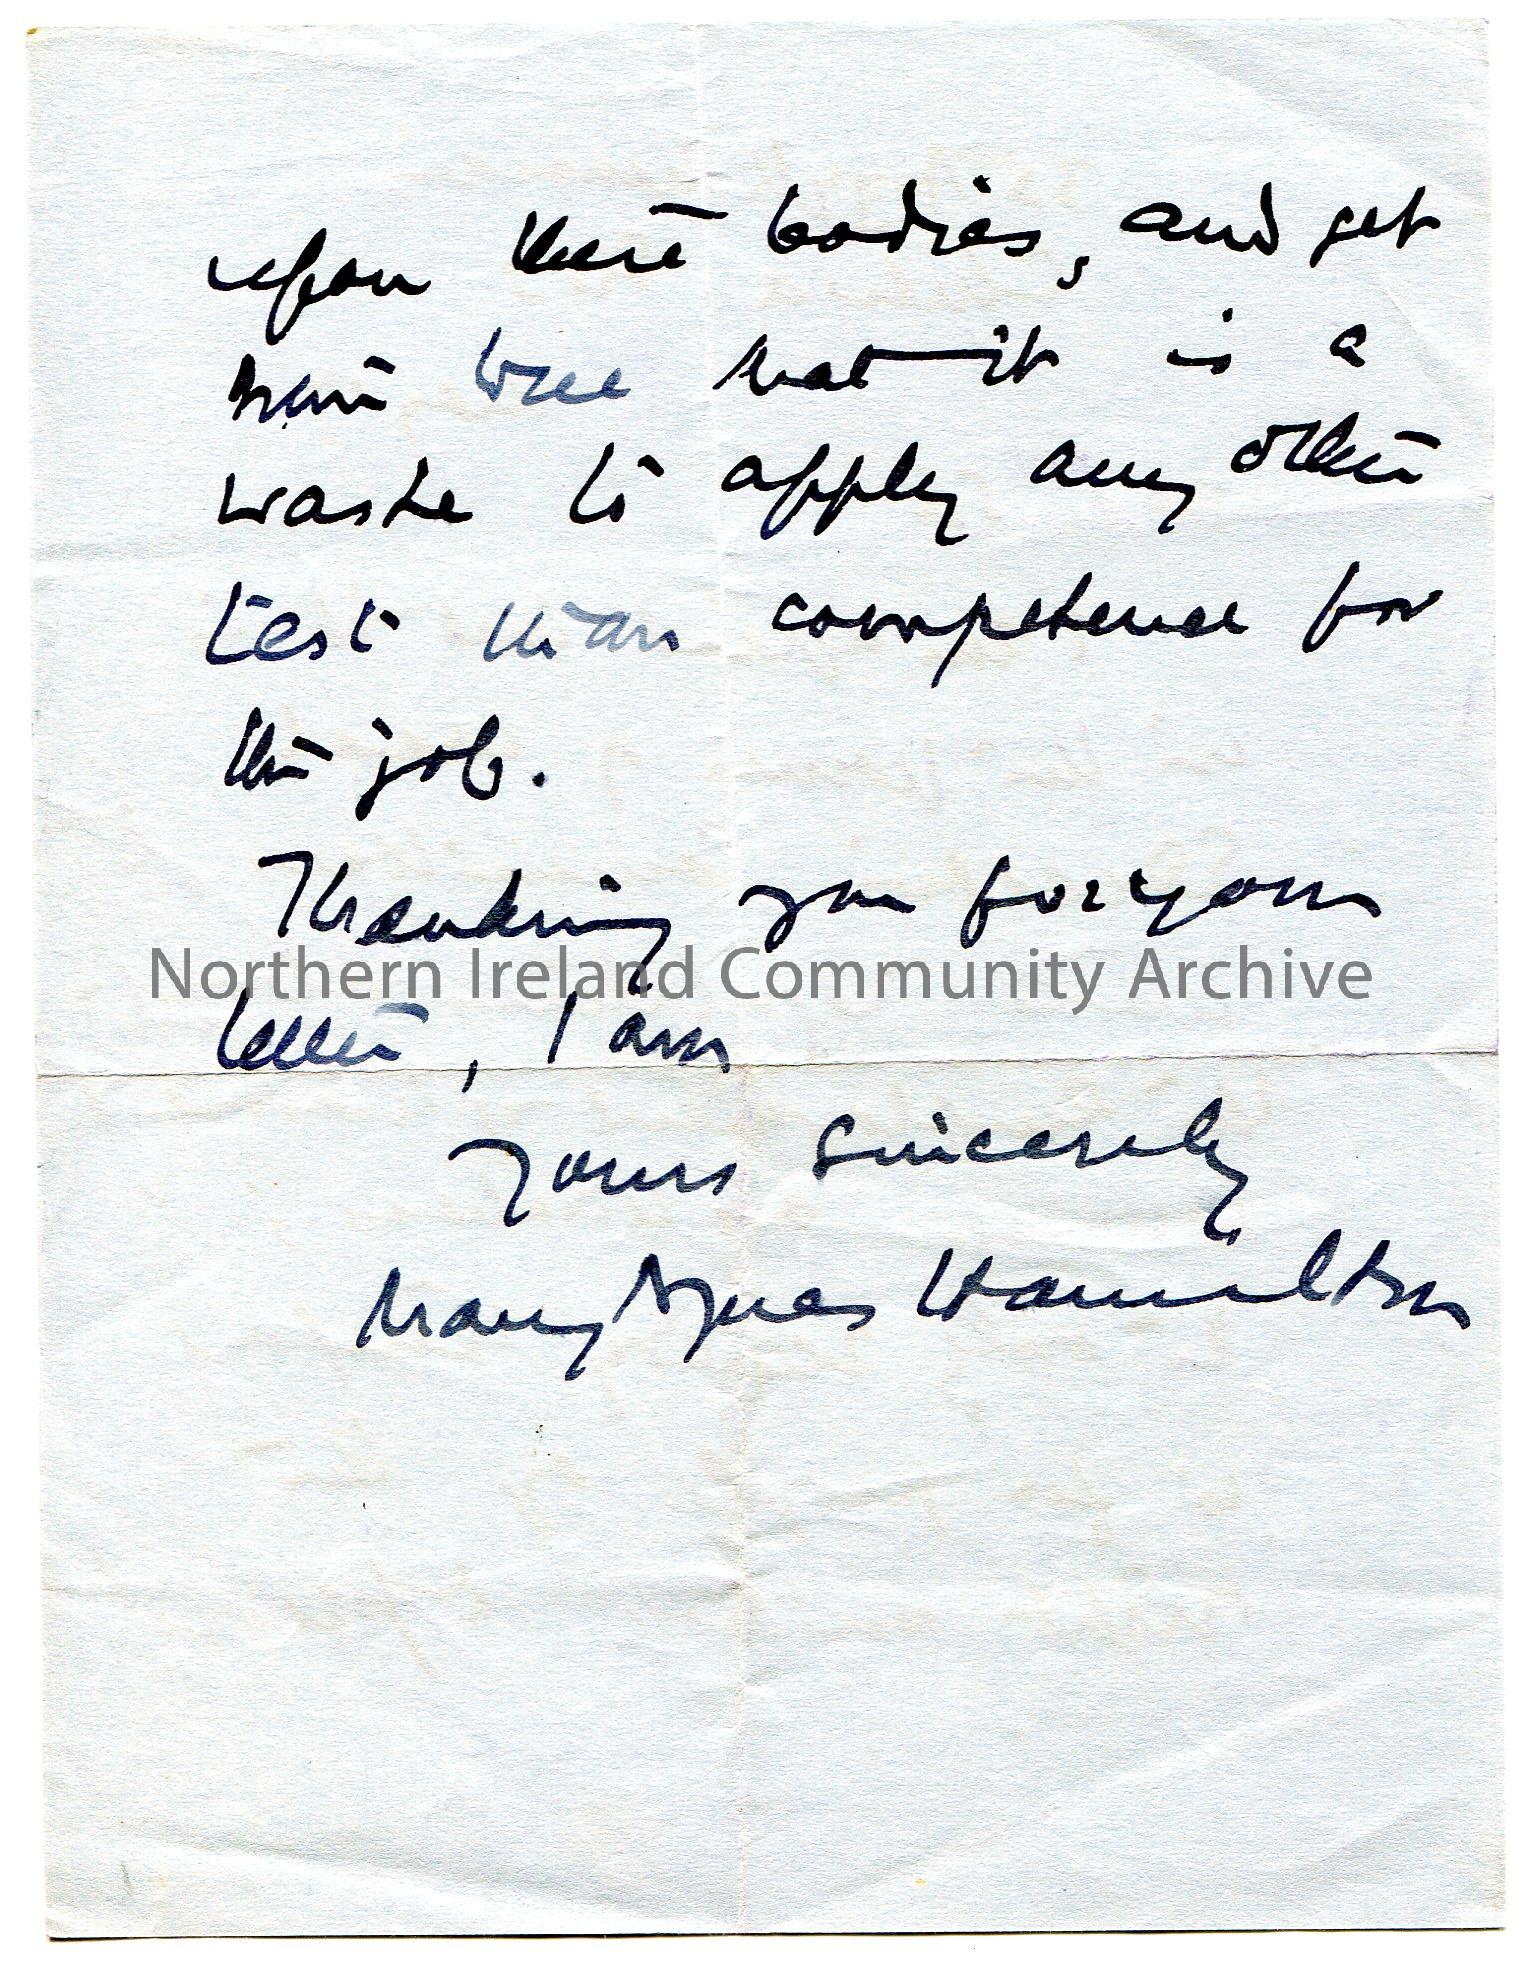 upon these bodies, and get
them well that it is a
waste to apply any other
test than competence for
the job.
Thanking you for your
Northern Ireland Community Archive
letter, I am
Yours sincerely
Mary Agnes Hamilton